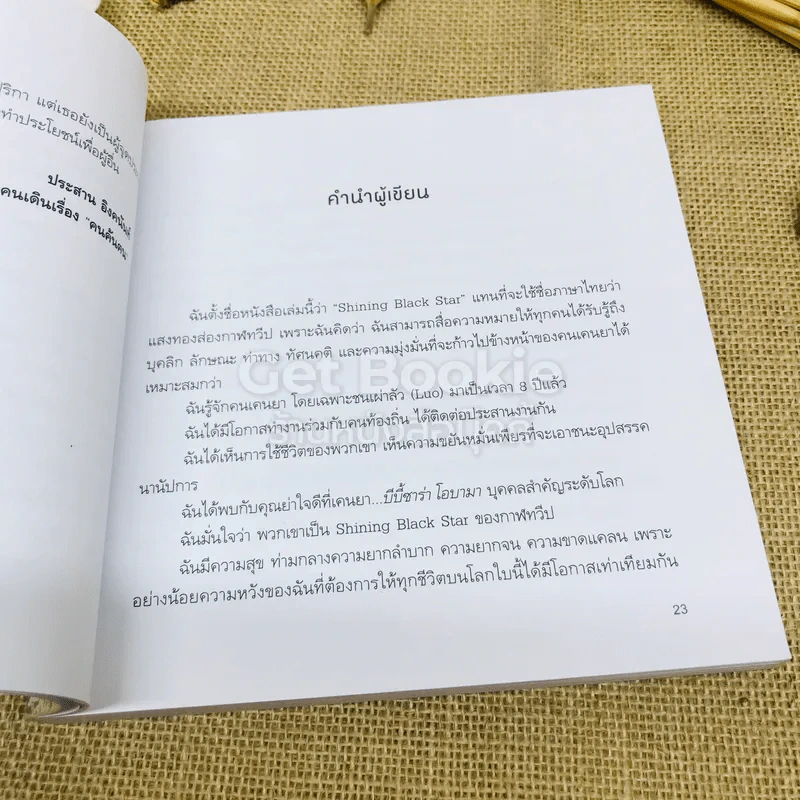 แต่เธอยังเป็นผู้จุด
ทำประโยชน์เพื่อผู้อื่น
ประสาน อิงคนันท์
คนเดินเรื่อง "คนค้นฅน"
คำนำผู้เขียน
ฉันตั้งชื่อหนังสือเล่มนี้ว่า "Shining Black Star" แทนที่จะใช้ชื่อภาษาไทยว่า
แสงทองส่องกาฬทวีป เพราะฉันคิดว่า ฉันสามารถสื่อความหมายให้ทุกคนได้รับรู้ถึง
บุคลิก ลักษณะ ท่าทาง ทัศนคติ และความมุ่งมั่นที่จะก้าวไปข้างหน้าของคนเคนยาได้
เหมาะสมกว่า
ฉันรู้จักคนเคนยา โดยเฉพาะชนเผ่าลัว (Luo) มาเป็นเวลา 8 ปีแล้ว
ฉันได้มีโอกาสทำงานร่วมกับคนท้องถิ่น ได้ติดต่อประสานงานกัน
ฉันได้เห็นการใช้ชีวิตของพวกเขา เห็นความขยันหมั่นเพียรที่จะเอาชนะอุปสรรค
นานัปการ
ฉันได้พบกับคุณย่าใจดีที่เคนยา...บีบี้ซาร่า โอบามา บุคคลสำคัญระดับโลก
ฉันมั่นใจว่า พวกเขาเป็น Shining Black Star ของกาฬทวีป
ฉันมีความสุข ท่ามกลางความยากลำบาก ความยากจน ความขาดแคลน เพราะ
อย่างน้อยความหวังของฉันที่ต้องการให้ทุกชีวิตบนโลกใบนี้ได้มีโอกาสเท่าเทียมกัน
23
Get Bookie